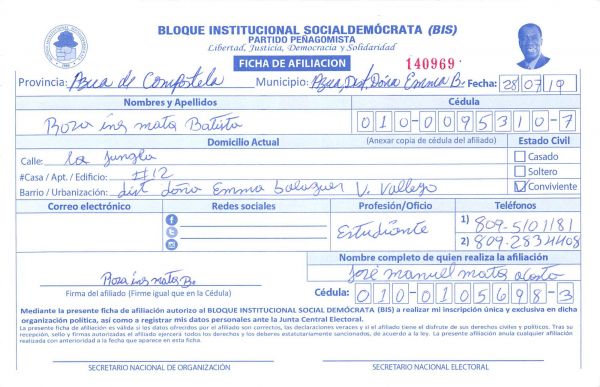 BLOQUE INSTITUCIONAL SOCIALDEMÓCRATA (BIS)
PARTIDO PEÑAGOMISTA
Libertad, Justicia, Democracia y Solidaridad
FICHA DE AFILIACION 140969
Provincia: Azua de Compostela Municipio: Azua, Dist. Doña Emma B. Fecha: 28/07/19
Nombres y Apellidos Cédula
Rosa ines mata Batista 010-0095310-7
Domicilio Actual (Anexar copia de cédula del afiliado) Estado Civil
Calle: La Jungla Casado
#Casa / Apt. / Edificio: #12 Soltero
Barrio / Urbanización: dist doña Emma balaguer V. Vallejo Conviviente
Correo electrónico Redes sociales Profesión/Oficio Teléfonos
Estudiante 1) 809-5101181
2) 809-2834408
Nombre completo de quien realiza la afiliación
Rosa ines mata B. José manuel mata Acosta
Firma del afiliado (Firme igual que en la Cédula) Cédula: 010-0105698-3
Mediante la presente ficha de afiliación autorizo al BLOQUE INSTITUCIONAL SOCIAL DEMÓCRATA (BIS) a realizar mi inscripción única y exclusiva en dicha
organización política, así como a registrar mis datos personales ante la Junta Central Electoral.
La presente ficha de afiliación es válida si los datos ofrecidos por el afiliado son correctos, las declaraciones veraces y si el afiliado tiene el disfrute de sus derechos civiles y políticos. Tras su
recepción, sello y firmas autorizadas el afiliado ejercerá todos los derechos y los deberes estatutariamente sancionados, de acuerdo a la ley. La presente afiliación anula cualquier afiliación
realizada con anterioridad a la fecha que aparece en esta ficha.
SECRETARIO NACIONAL DE ORGANIZACIÓN SECRETARIO NACIONAL ELECTORAL